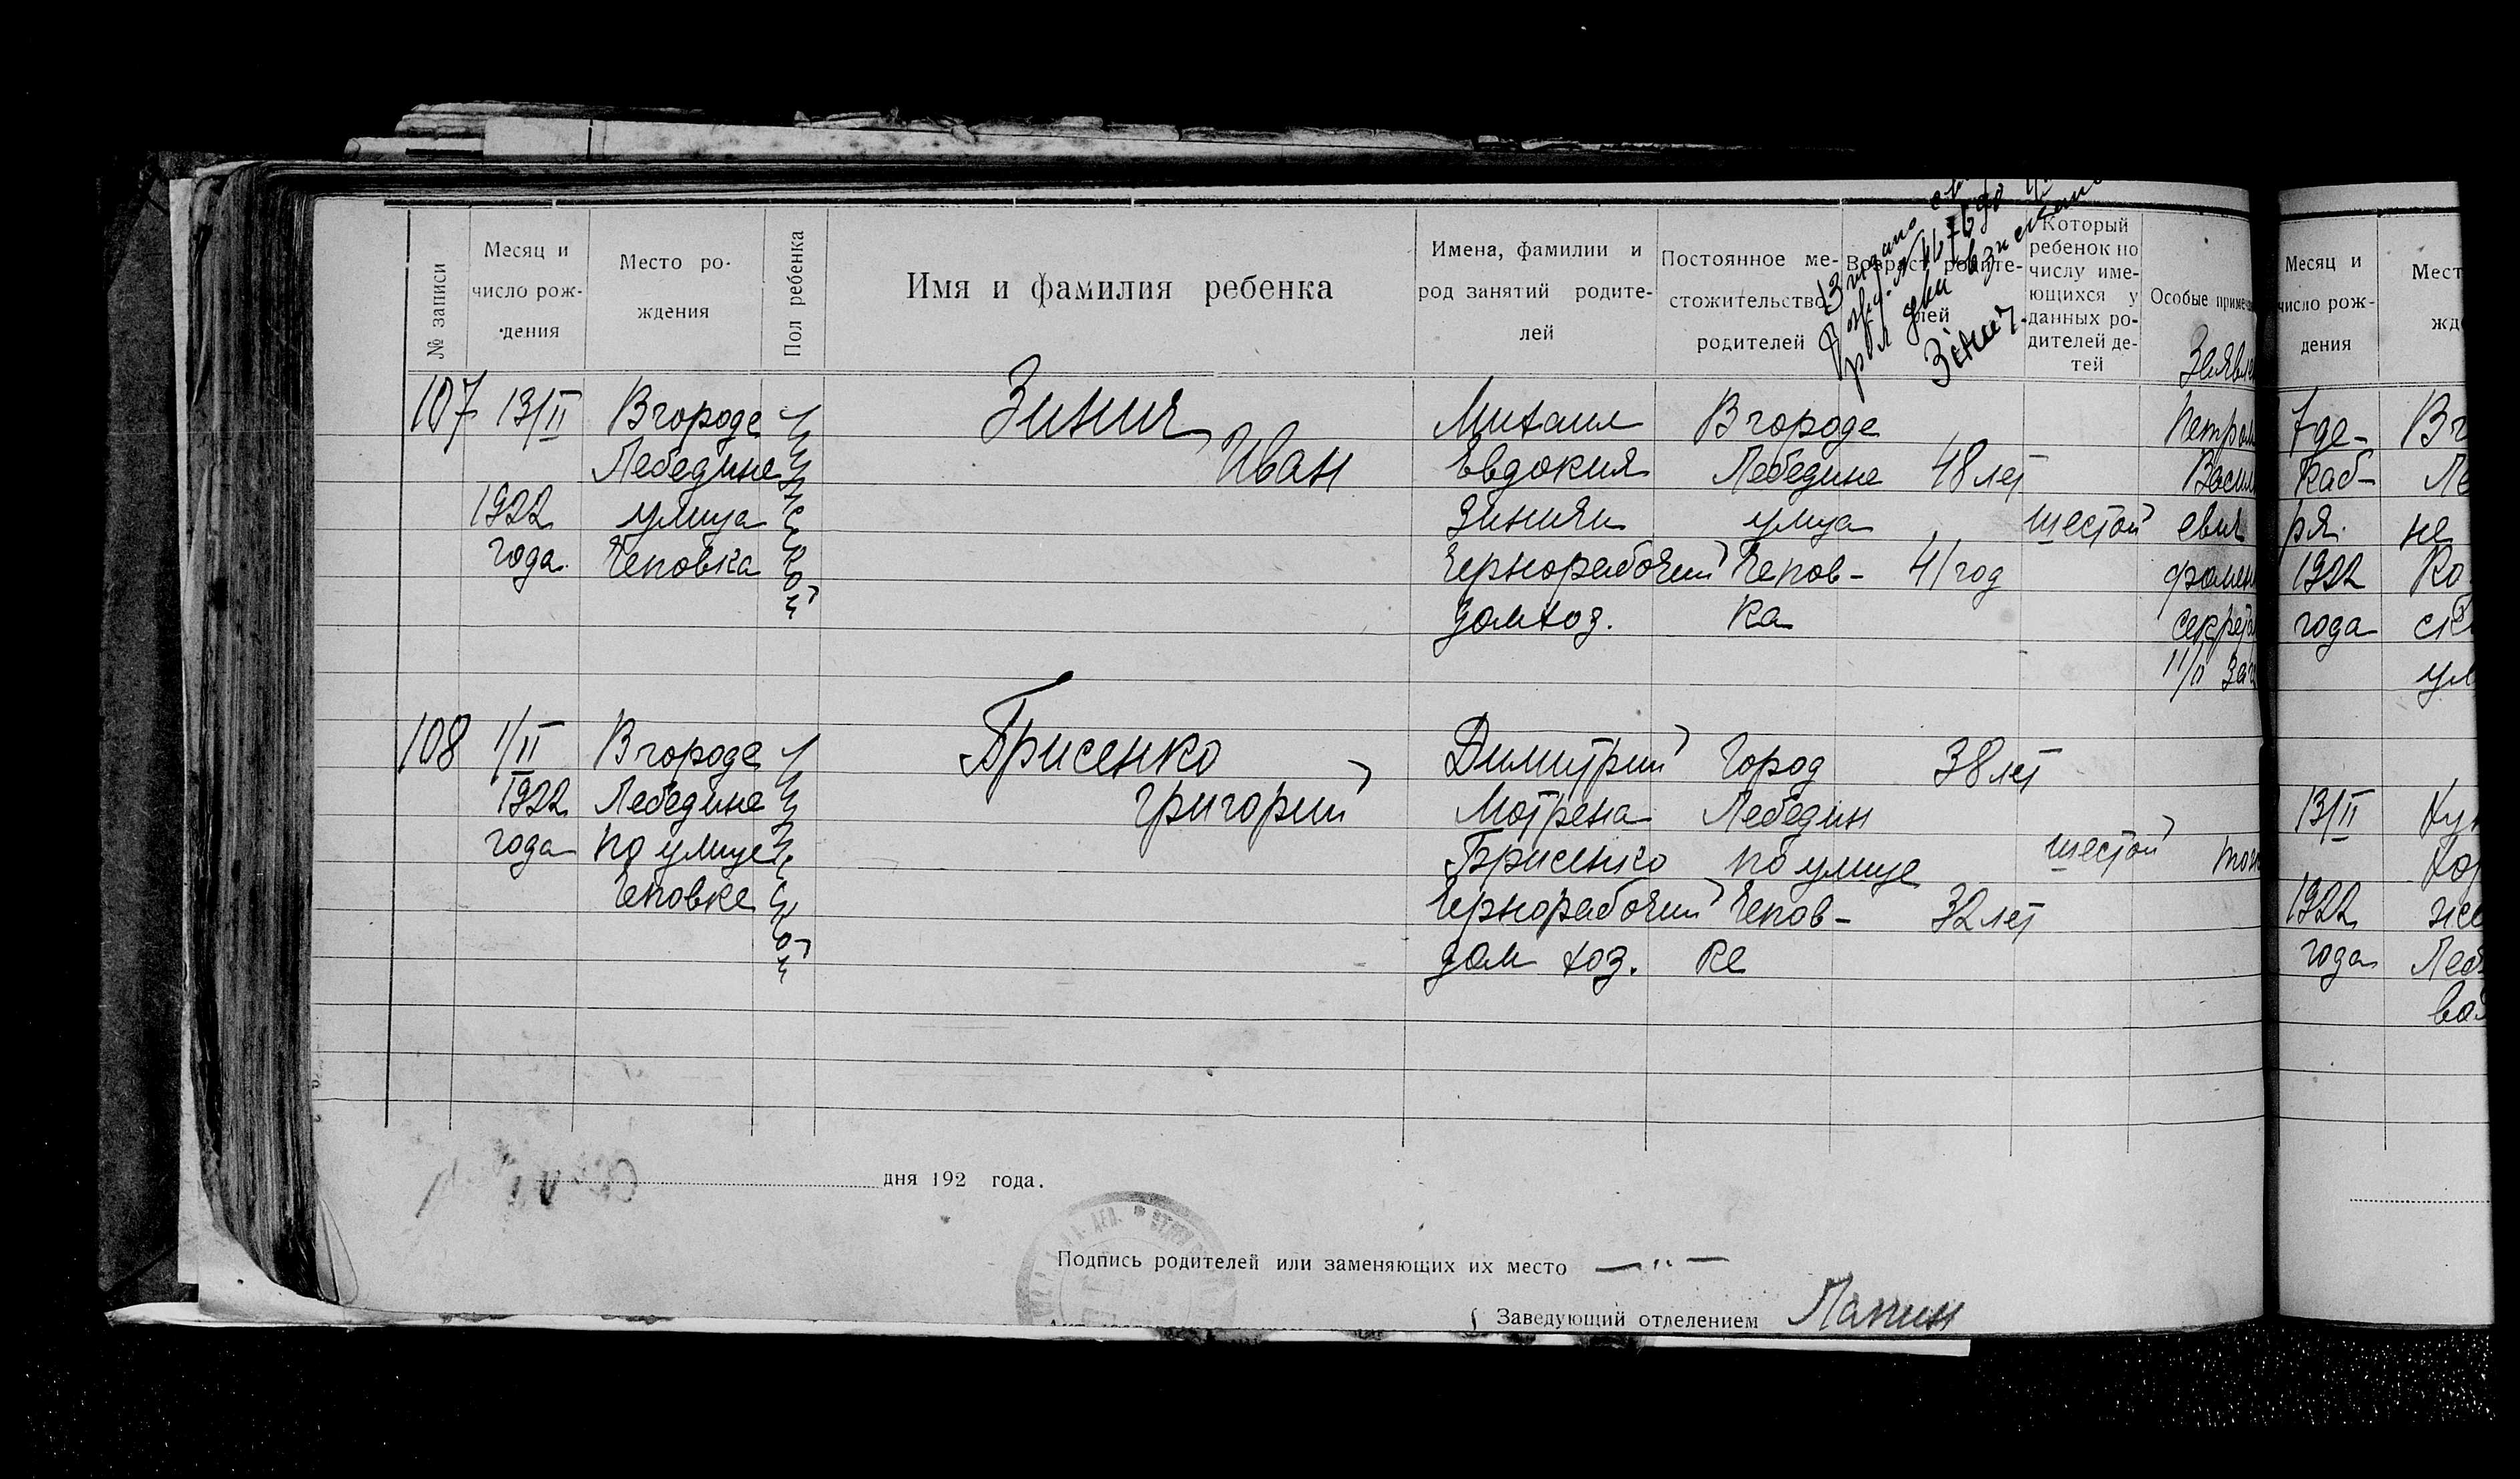 № записи
Месяц и число рож-дения
Место ро-ждения
Пол ребенка
Имя и фамилия ребенка
Имена, фамилии и род занятий родите-лей
Постоянное ме-стожительство родителей
Возраст родите-лей
Который ребенок по числу име-ющихся у данных ро-дителей де-тей
Особые
107
13/II
1922
года
В городе
Лебедине
улица
Чеповка
мужской
Зинич
Иван
Михаил
Евдокия
Зиничи
Чернорабочий
домхоз.
В городе
Лебедине
улица
Чепов-
ка
48 лет
41 год
шестой
108
1/II
1922
года
В городе
Лебедине
по улице
Чеповке
мужской
Брисенко
Григорий
Димитрий
Мотрена
Брисенко
Чернорабочий
дом хоз.
Город
Лебедин
по улице
Чепов-
ке
38 лет
32 лет
шестой
дня 192 года.
Подпись родителей или заменяющих их место
Заведующий отделением
Месяц и
число рож-
дения
7 де-
каб-
ря
1922
года
13/II
1922
года